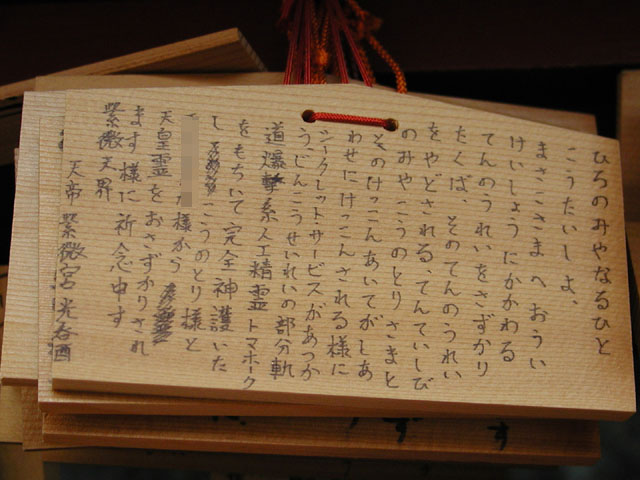 ひろのみやなるひと
こうたいしよ、
まさこさま へ おうい
けいしょうにかかわる
てんのうれいをさずかり
たくば、そのてんのうれい
をやどされる、てんていしび
のみやこうのとりさまと
そのけっこんあいてがしあ
わせにけっこんされる様に
シークレットサービスがあつか
うじんこうせいれいの部分軌
道爆撃系人工精霊トマホーク
をもちいて完全神護いた
し こうのとり様と
様から
天皇霊をおさずかりされ
ます様に祈念申す
紫微天界
天帝紫微宮光呑酒
す